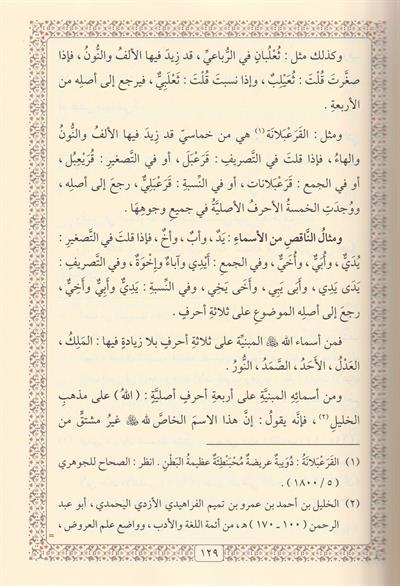 وكذلك مثل : ثُعْلُبانٍ في الرُّباعيِّ ، قد زِيدَ فيها الألفُ والنُّونُ ، فإذا
صغَّرتَ قُلْتَ : ثُعَيْلِبٌ ، وإذا نسبتَ قُلْتَ : ثَعْلَبِيٌّ ، فيرجع إلى أصلِه من
الأربعةِ .
ومثل : القَرَعْبَلانَة (١) هي من خماسيٍّ قد زِيدَ فيها الألفُ والنُّونُ
والهاءُ ، فإذا قلتَ في التَّصريفِ : قَرَعْبَلَ ، أو في التصغيرِ : قُرَيْعِبُل ،
أو في الجمع : قَرَعْبَلانات ، أو في النِّسبةِ : قَرَعْبَلِيٌّ ، رجعَ إلى أصلِه ،
ووُجدَتِ الخمسةُ الأحرفُ الأصليَّةُ في جميعِ وجوهِهَا .
ومثالُ النَّاقصِ من الأسماءِ : يَدٌ ، وأبٌ ، وأخٌ ، فإذا قلتَ في التَّصغيرِ :
يُدَيٌّ ، وأُبَيٌّ ، وأُخَيٌّ ، وفي الجمع : أَيْدِي وآباءٌ وإِخْوَةٌ ، وفي التَّصريفِ :
يَدَى يَدِي ، وأَبَى يَبِي ، وأَخَى يَخِي ، وفي النِّسبةِ : يَدِيٌّ وأَبِيٌّ وأَخِيٌّ ،
رجعَ إلى أصلِه الموضوعِ على ثلاثةِ أحرفٍ .
فمن أسماء الله ﷻ المبنيَّة على ثلاثةِ أحرفٍ بلا زيادةٍ فيها : المَلِكُ ،
العَدْلُ ، الأَحَدُ ، الصَّمَدُ ، النُّورُ .
ومن أسمائِهِ المبنيَّةِ على أربعةِ أحرفٍ أصليَّةٍ : (اللهُ) على مذهبِ
الخليلِ (٢) ، فإنَّه يقولُ : إنَّ هذا الاسمَ الخاصَّ لله ﷻ غيرُ مشتقٍّ من
(١) القَرَعْبَلانَةُ : دُوَيبة عريضةٌ مُحْبَنْطِئَةٌ عظيمةُ البَطْنِ . انظر : الصحاح للجوهري
(٥ / ١٨٠٠) .
(٢) الخليل بن أحمد بن عمرو بن تميم الفراهيدي الأزدي اليحمدي ، أبو عبد
الرحمن (١٠٠ ـ ١٧٠) هـ، من أئمة اللغة والأدب ، وواضع علم العروض ،
=
١٢٩